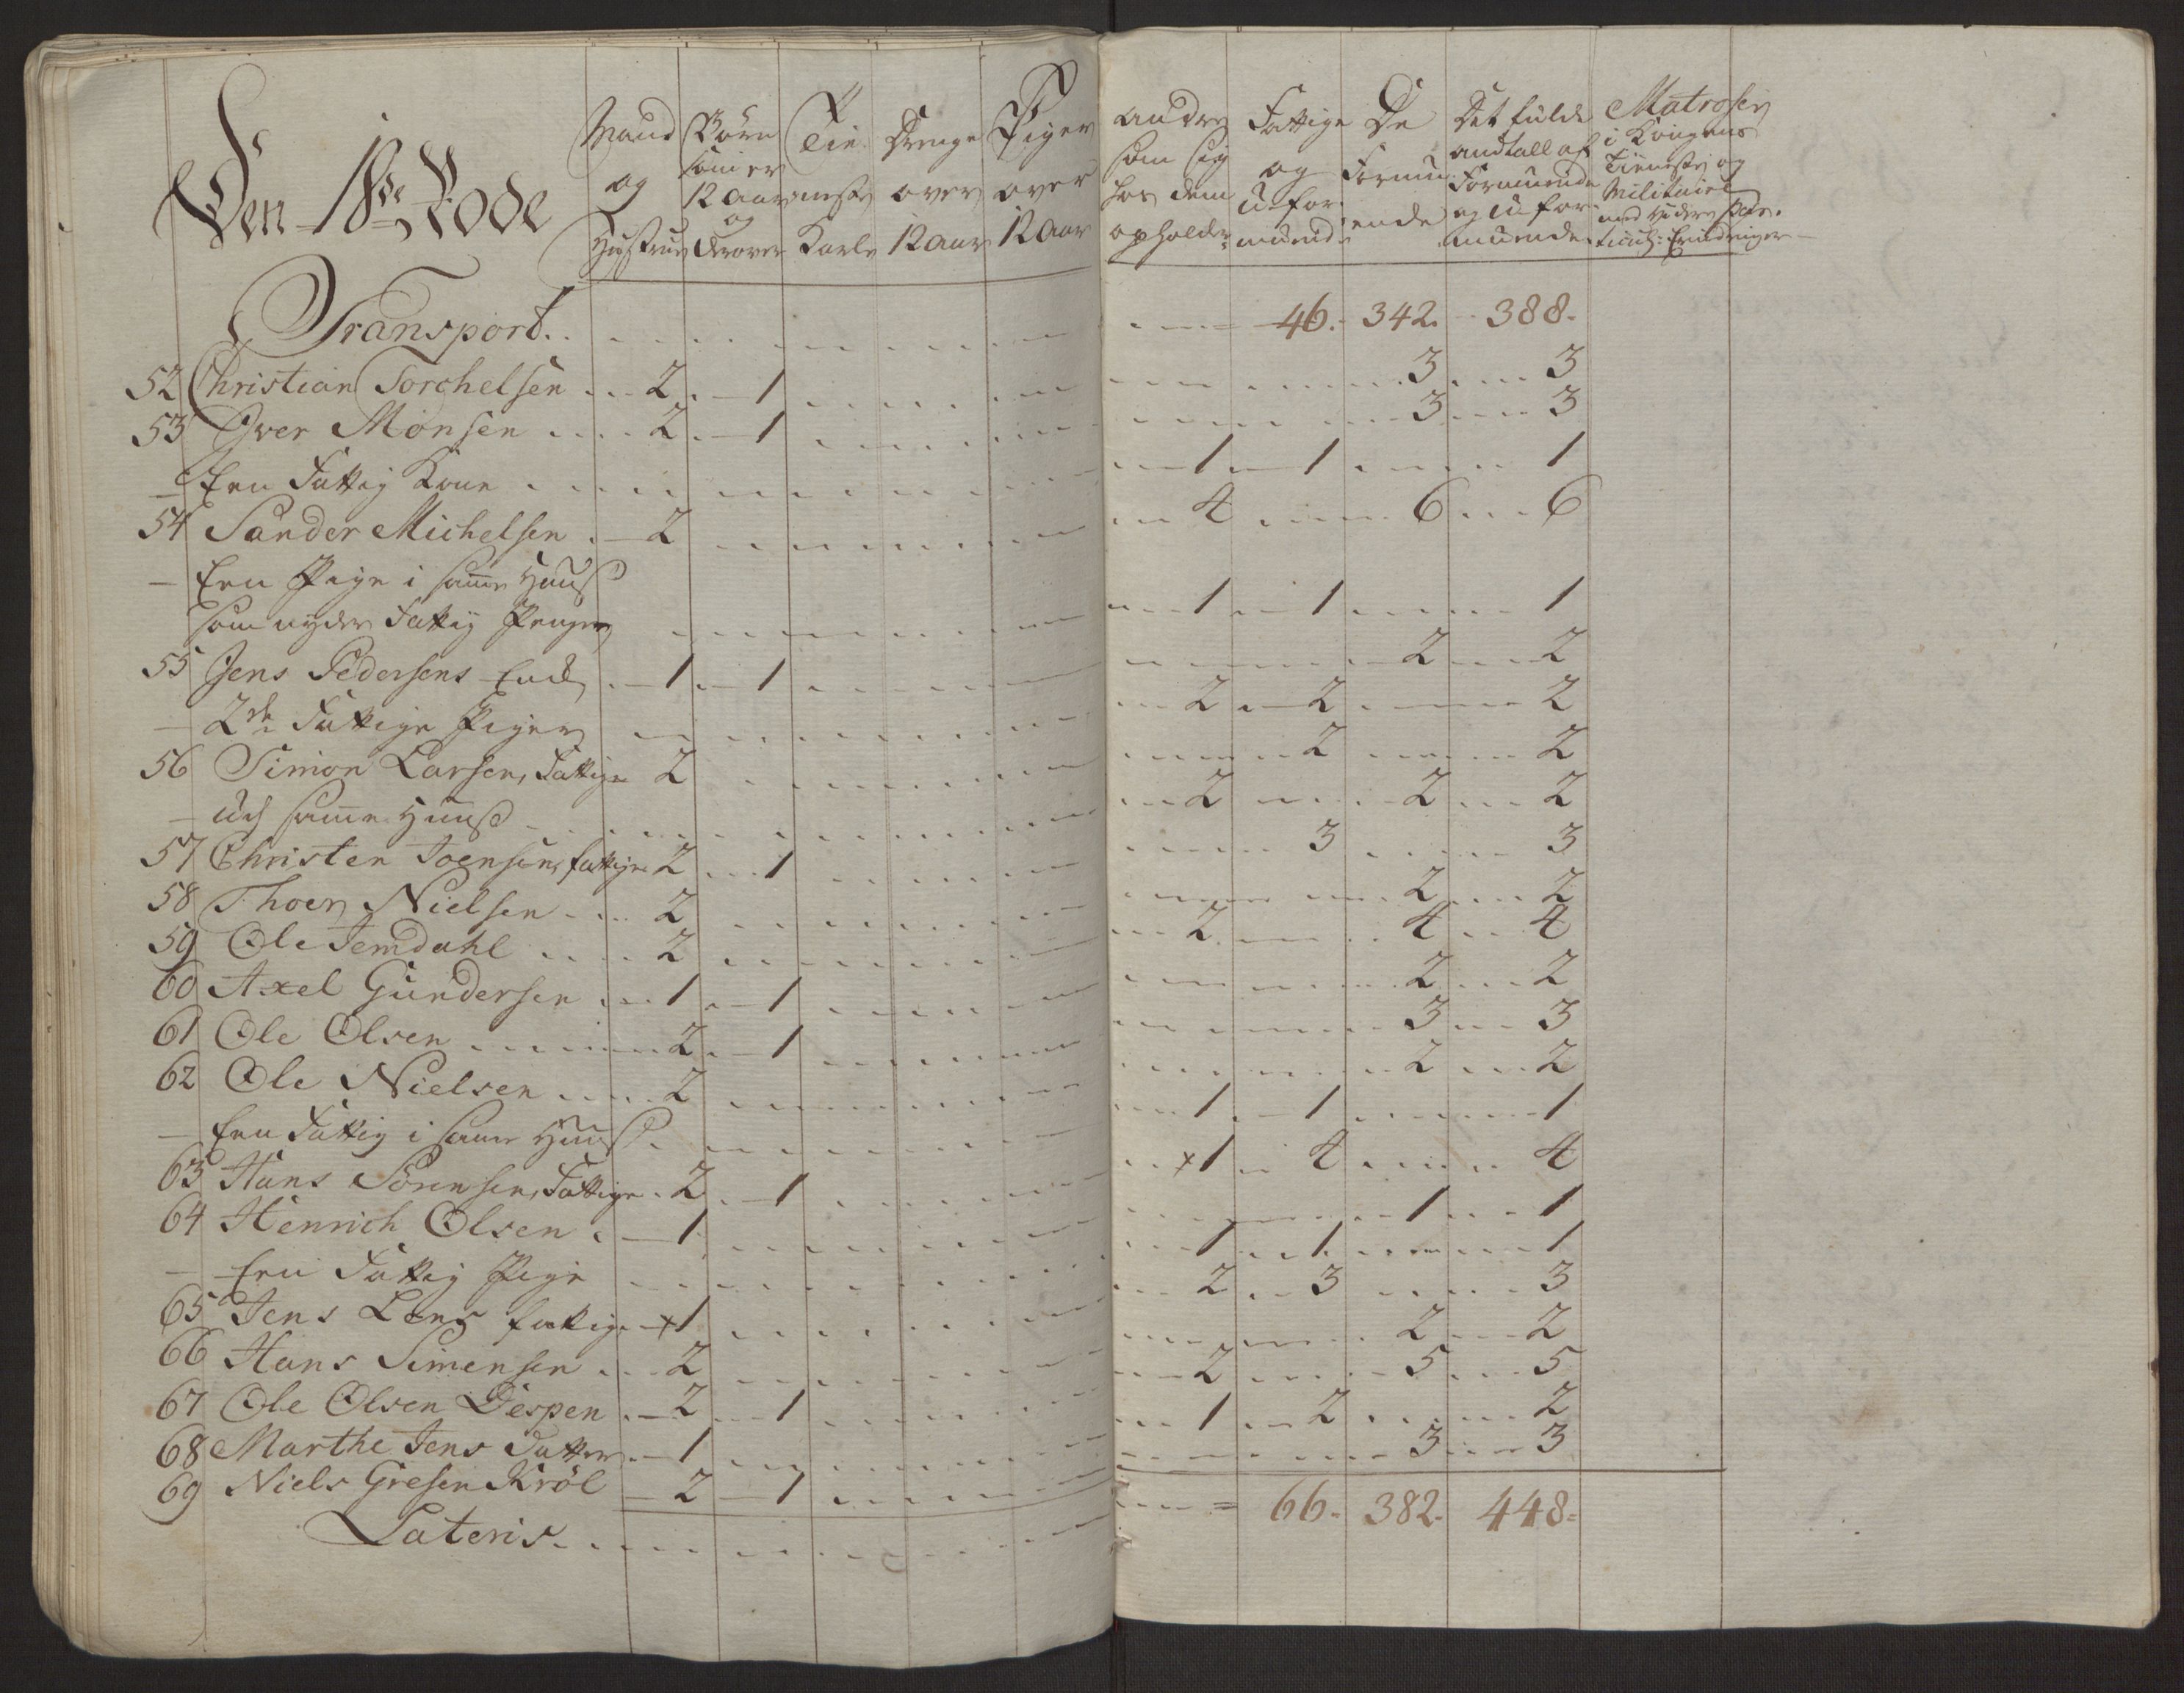 Den 18de Rode
Mand og Hustrue
Börn som er 12 Aar og derover
Tieneste Karle
Drenge over 12 Aar
Piger over 12 Aar
andre som sig hos dem opholder
Fattige og Uformuend:
De Formuende
Det fulde andtall af Formuende og Uformuende
Matroser i Kongens Tieneste og Militaire med videre Erindringer
Transport. 46. 342. 388.
52 Christian Torchelsen 2 1 3 3
53 Iver Monsen 2 1 3 3
- Een Fattig Kone 1 1 1
54 Sander Michelsen 2 4 6 6
- Een Pige i samme Huus
som nyder Fattig Penger 1 1 1
55 Jens Pedersens Enke 1 1 2 2
- 2de Fattige Piger 2 2 2
56 Simon Larsen, Fattige 2 2 2
- Udj samme Huuus 2 2 2
57 Christen Joensen, fattige 2 1 3 3
58 Thoer Nielsen 2 2 2
59 Ole Jemdahl 2 2 4 4
60 Axel Gundersen 1 1 2 2
61 Ole Olsen 2 1 3 3
62 Ole Nielsen 2 2 2
- Een Fattig i samme Huus 1 1 1
63 Hans Sörensen, Fattige 2 1 x1 4 4
64 Henrich Olsen 1 1 1
- Een Fattig Pige 1 1 1
65 Jens Lens fattige x1 2 3 3
66 Hans Simensen 2 2 2
67 Ole Olsen Despen 2 1 2 5 5
68 Marthe Jens Datter 1 1 2 2
69 Niels Gresen Kröl 2 1 3 3
Lateris 66. 382. 448.